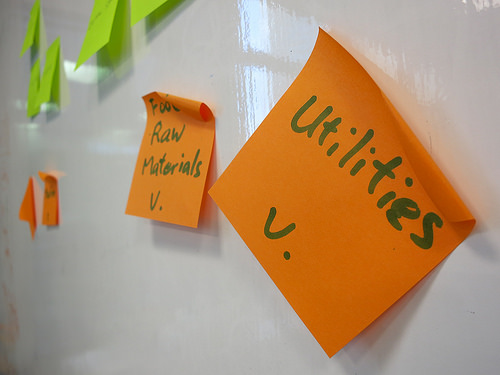 Raw
Materials
V.
Utilities
V.